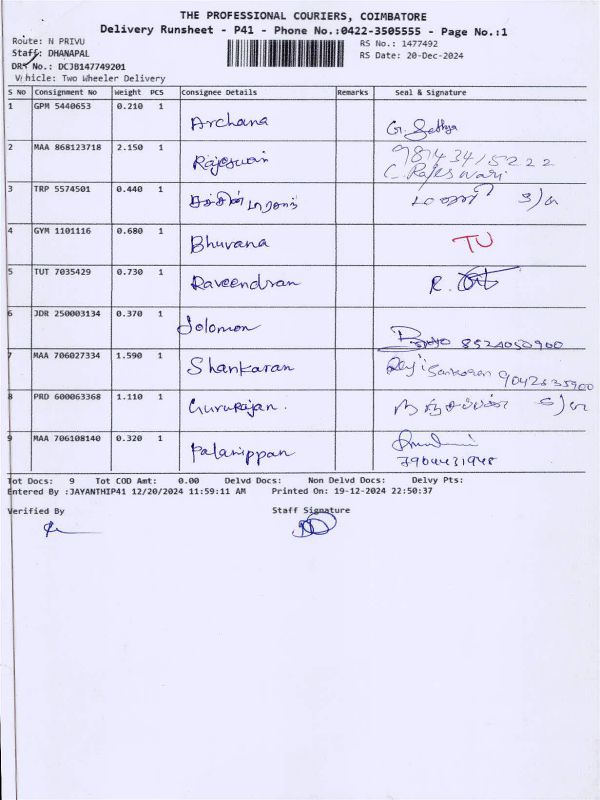 THE PROFESSIONAL COURIERS, COIMBATORE
Delivery Runsheet - P41 - Phone No.:0422-3505555 - Page No.:1
Route: N PRIVU
RS No.: 1477492
Staff: DHANAPAL
RS Date: 20-Dec-2024
DRS No.: DCJB147749201
Vehicle: Two Wheeler Delivery
S No Consignment No Weight PCS Consignee Details Remarks Seal & Signature
1 GPM 5440653 0.210 1 Archana G. Sathya
2 MAA 868123718 2.150 1 Rajeswari 98143415222
C. Rajeswari
3 TRP 5574501 0.440 1
4 GYM 1101116 0.680 1 Bhuvana TU
5 TUT 7035429 0.730 1 Raveendran R.
6 JDR 250003134 0.370 1 Solomon 8524050900
7 MAA 706027334 1.590 1 Shankaran Sankaran
8 PRD 600063368 1.110 1 Gururajan.
9 MAA 706108140 0.320 1 Palanippan
Tot Docs: 9 Tot COD Amt: 0.00 Delvd Docs: Non Delvd Docs: Delvy Pts:
Entered By :JAYANTHIP41 12/20/2024 11:59:11 AM Printed On: 19-12-2024 22:50:37
Verified By Staff Signature